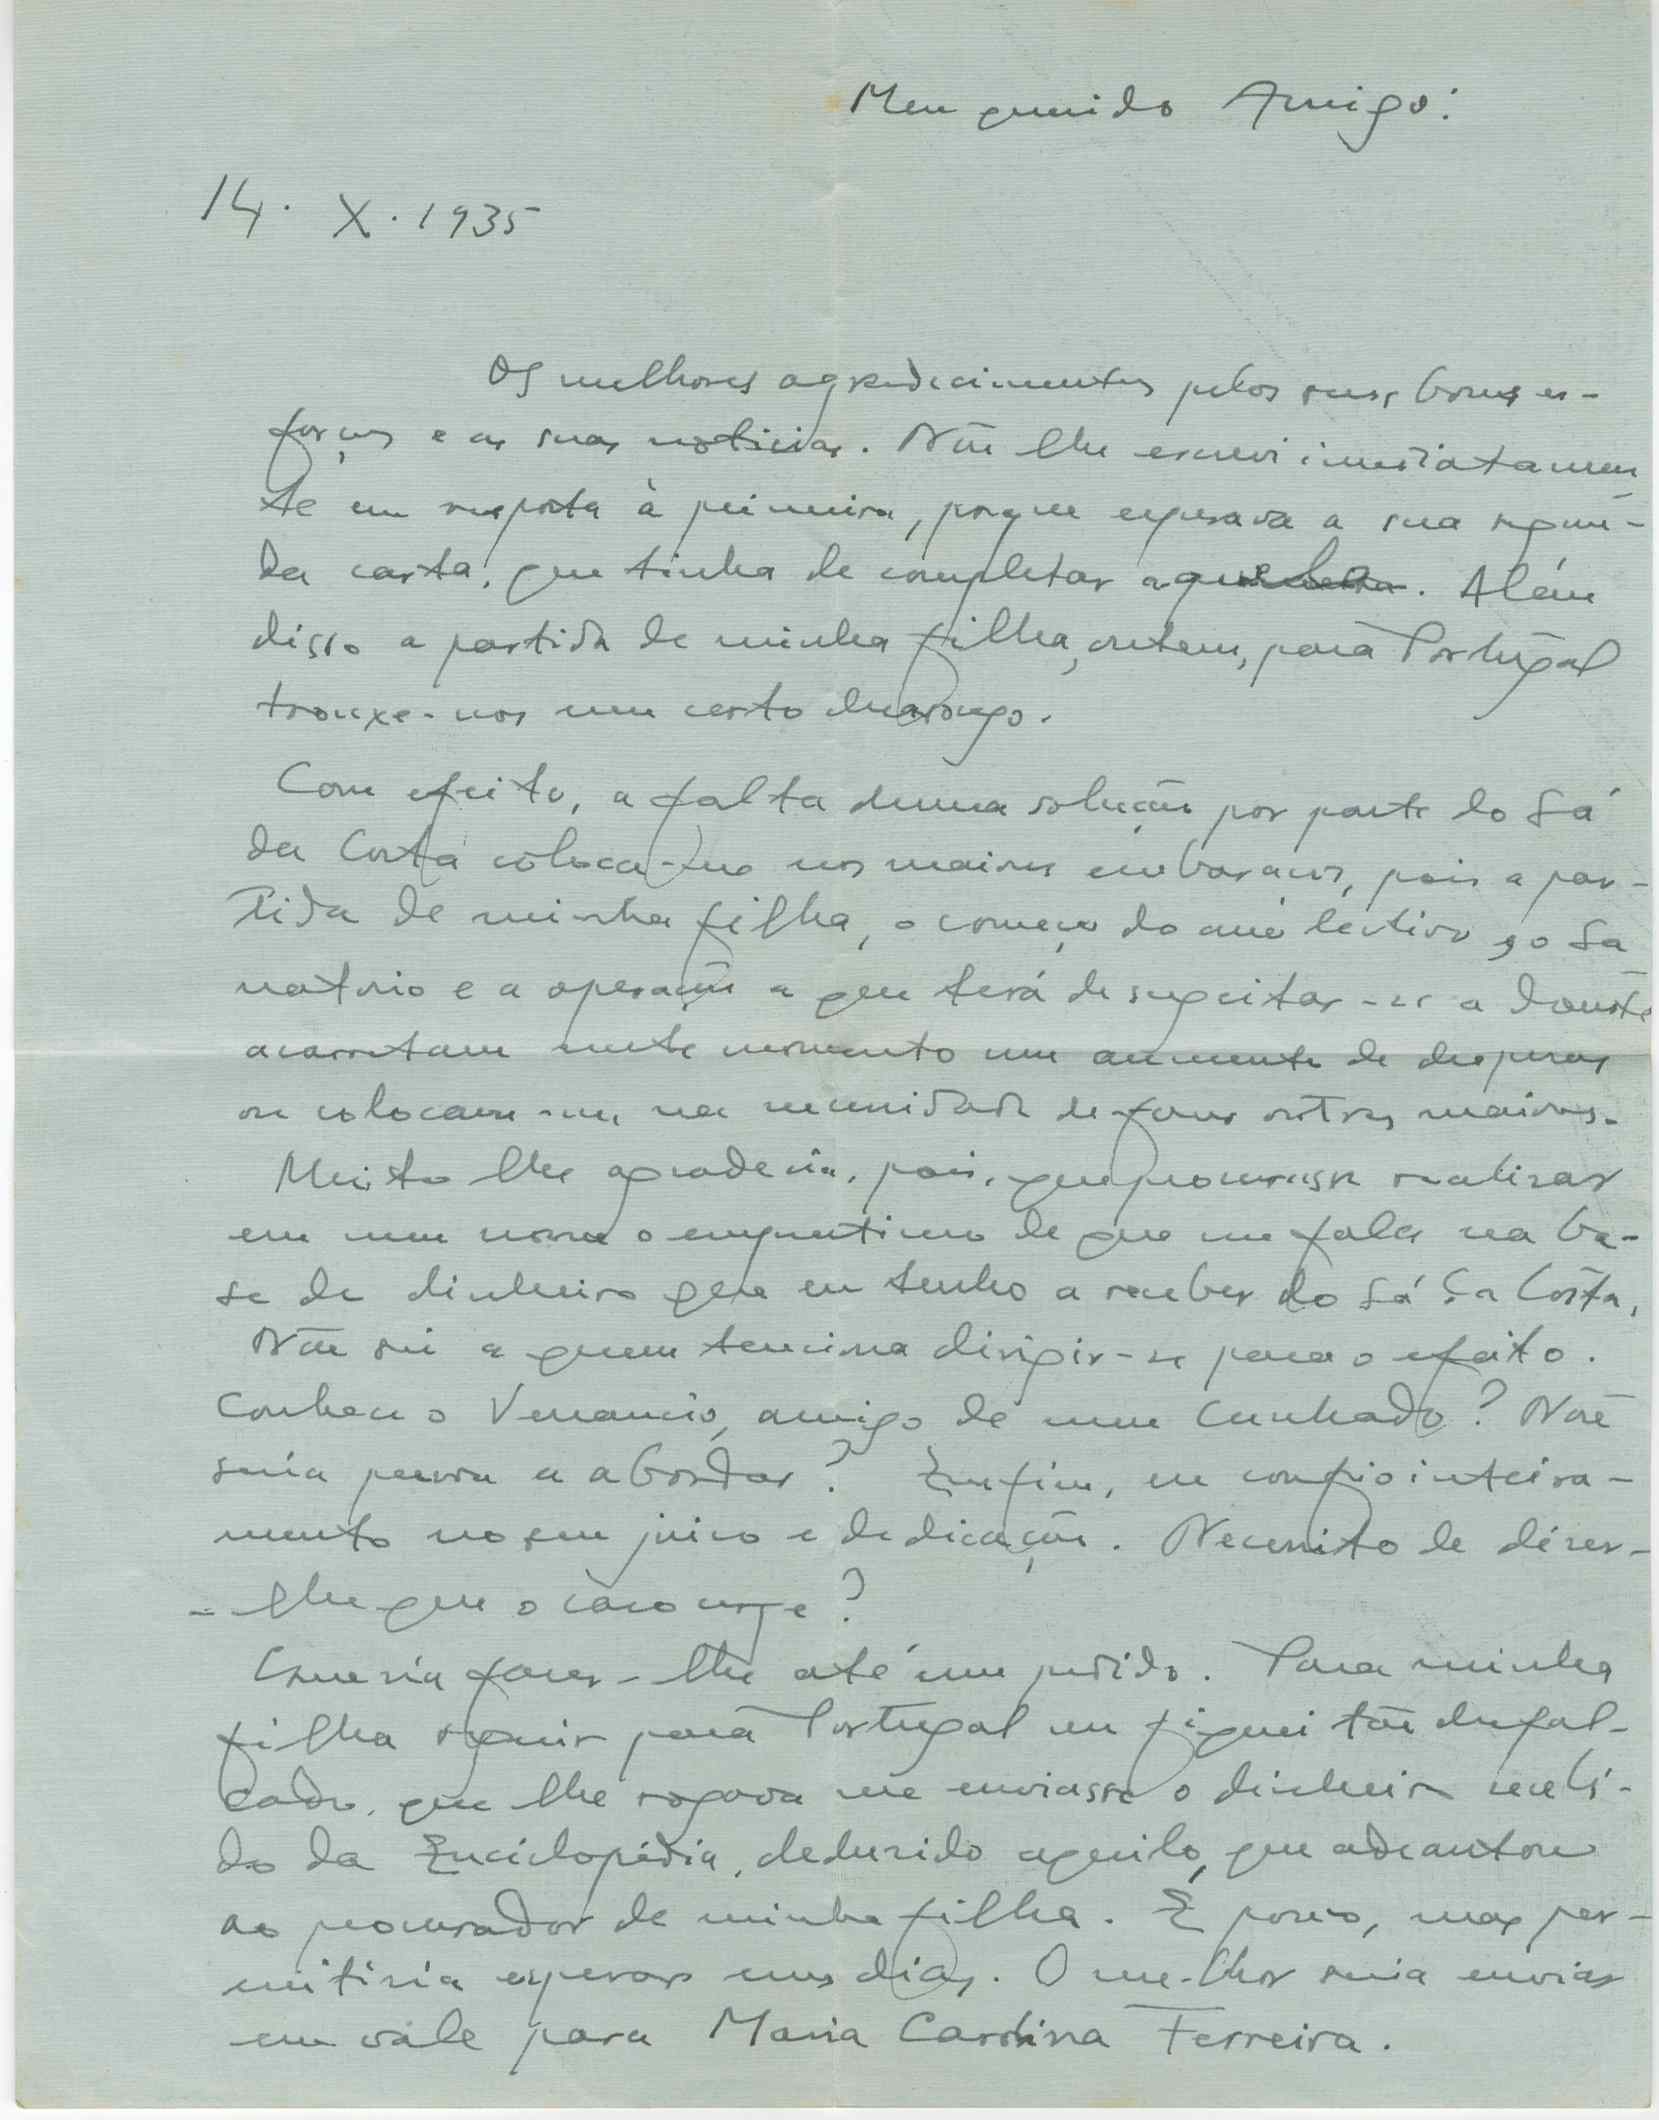 Meu querido Amigo:
14. X. 1935
Os melhores agradecimentos pelos seus bons es-
forços e as suas noticias. Não lhe escrevi imediatamen
te em resposta à primeira, porque esperava a sua segun-
da carta, que tinha de completar aquela. Além
disso a partida de minha filha, ontem, para Portugal
trouxe-nos um certo desarranjo.
Com efeito, a falta duma solução por parte do Sá
da Costa coloca-me nos maiores embaraços, pois a par-
tida de minha filha, o começo do ano lectivo, o Sa
natorio e a operação a que terá de sugeitar-se a doente
acarretam neste momento um aumento de despesas
ou colocam-me na necessidade de fazer outras maiores.
Muito lhe agradecia, pois, que procurasse realizar
em meu nome o emprestimo de que me fala na ba-
se de dinheiro que eu tenho a receber do Sá da Costa,
Não sei a quem tenciona dirigir-se para o efeito.
Conhece o Venancio, amigo de meu cunhado? Não
seria pessoa a abordar? Emfim, eu confio inteira-
mente no seu juizo e dedicação. Necessito de dizer-
-lhe que o caso urge?
Queria fazer-lhe até um pedido. Para minha
filha seguir para Portugal eu fiquei tão desfal-
cado, que lhe rogava me enviasse o dinheiro recebi-
do da Enciclopédia, deduzido aquilo, que adeantou
ao procurador de minha filha. É pouco, mas per-
mitiria esperar uns dias. O melhor seria enviar
em vale para Maria Carolina Ferreira.